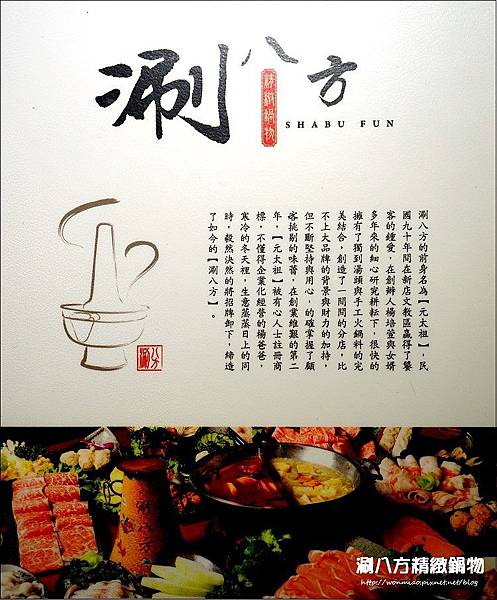 涮八方
精緻鍋物
SHABU FUN
涮八方的前身名為【元太祖】,民
國九十年間在新店文教區贏得了饕
客的鍾愛,在創辦人楊培瑩與女婿
多年來的細心研究耕耘下,很快的
擁有了獨到湯頭與手工火鍋料的完
美結合,創造了一間間的分店,比
不上大品牌的背景與財力的加持,
但不斷堅持與用心,的確掌握了顧
客挑剔的味蕾,在創業維艱的第二
年,【元太祖】被有心人士註冊商
標,不懂得企業化經營的楊爸爸,
寒冷的冬天裡,生意蒸蒸日上的同
時,毅然決然的將招牌卸下,締造
了如今的【涮八方】。
涮八方
涮八方
涮八方精緻鍋物
http://wonmido.pixnet.net/blog